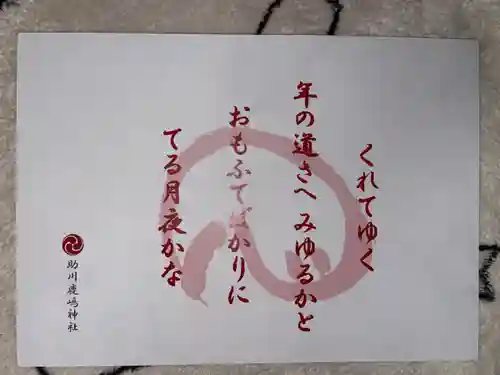 くれてゆく
年の道さへ みゆるかと
おもふてばかりに
てる月夜かな
助川鹿嶋神社